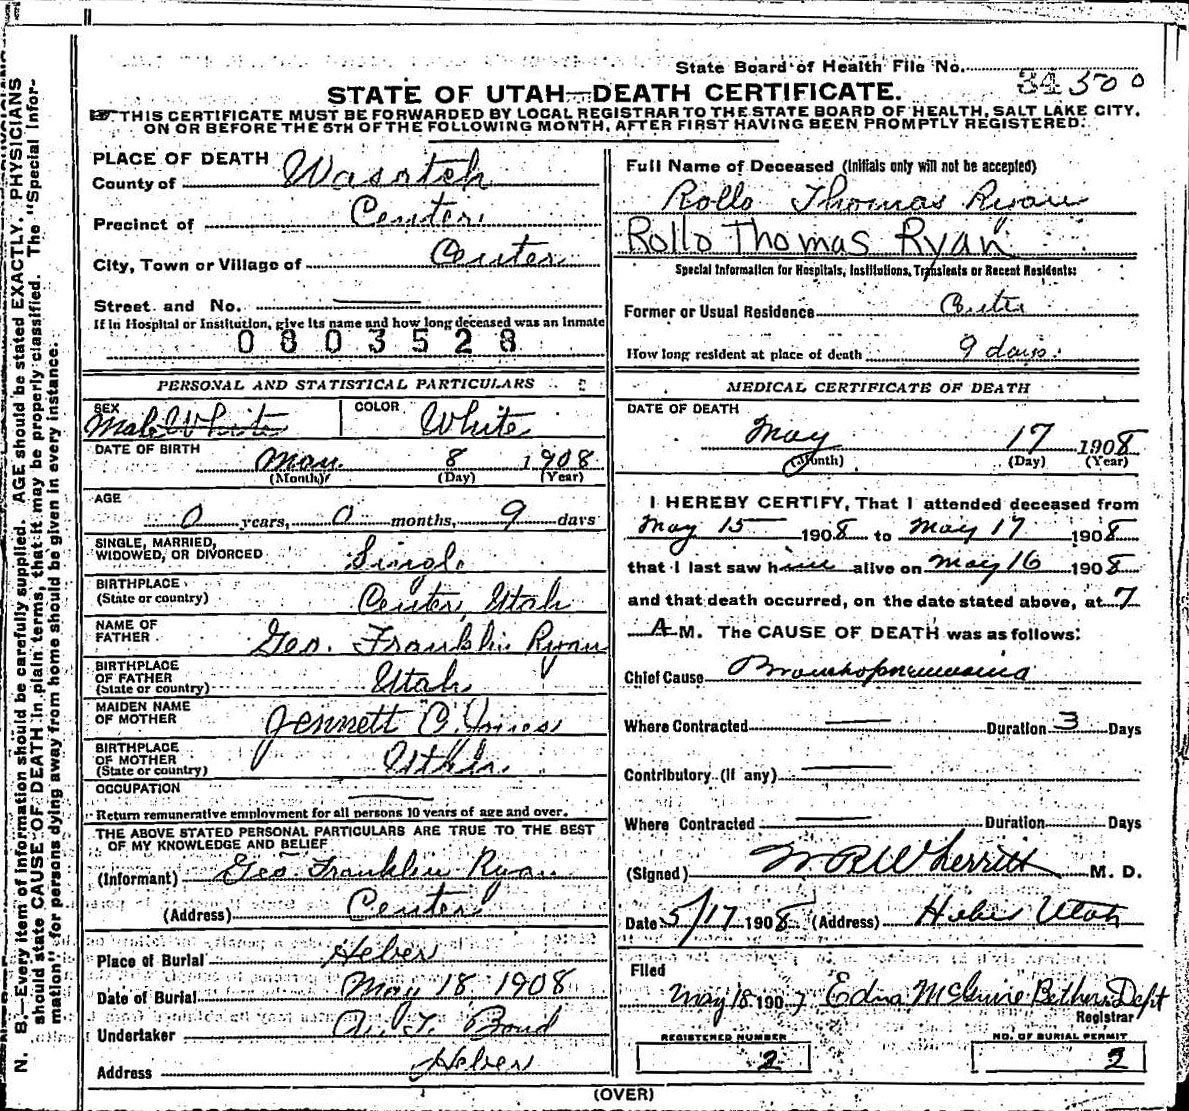 State Board of Health File No. 34500
STATE OF UTAH—DEATH CERTIFICATE.
THIS CERTIFICATE MUST BE FORWARDED BY LOCAL REGISTRAR TO THE STATE BOARD OF HEALTH, SALT LAKE CITY,
ON OR BEFORE THE 5TH OF THE FOLLOWING MONTH, AFTER FIRST HAVING BEEN PROMPTLY REGISTERED.
PLACE OF DEATH
County of Wasatch
Precinct of Center
City, Town or Village of Center
Street and No.
If in Hospital or Institution, give its name and how long deceased was an inmate
0803528
PERSONAL AND STATISTICAL PARTICULARS
SEX Male White
COLOR White
DATE OF BIRTH
May 8 1908
(Month) (Day) (Year)
AGE
0 years, 0 months, 9 days
SINGLE, MARRIED,
WIDOWED, OR DIVORCED Single
BIRTHPLACE
(State or country) Center, Utah
NAME OF
FATHER Geo. Franklin Ryan
BIRTHPLACE
OF FATHER
(State or country) Utah
MAIDEN NAME
OF MOTHER Jennett
BIRTHPLACE
OF MOTHER
(State or country) Utah
OCCUPATION
Return remunerative employment for all persons 10 years of age and over.
THE ABOVE STATED PERSONAL PARTICULARS ARE TRUE TO THE BEST
OF MY KNOWLEDGE AND BELIEF
(Informant) Geo Franklin Ryan
(Address) Center
Place of Burial Heber
Date of Burial May 18 1908
Undertaker Bond
Address Heber
Full Name of Deceased (Initials only will not be accepted)
Rollo Thomas Ryan
Rollo Thomas Ryan
Special Information for Hospitals, Institutions, Transients or Recent Residents:
Former or Usual Residence Center
How long resident at place of death 9 days.
MEDICAL CERTIFICATE OF DEATH
DATE OF DEATH
May 17 1908
(Month) (Day) (Year)
I HEREBY CERTIFY, That I attended deceased from
May 15 1908 to May 17 1908
that I last saw him alive on May 16 1908
and that death occurred, on the date stated above, at 7
A M. The CAUSE OF DEATH was as follows:
Chief Cause Bronchopneumonia
Where Contracted Duration 3 Days
Contributory (If any)
Where Contracted Duration Days
(Signed) W R Wherritt M. D.
Date 5/17 1908 (Address) Heber Utah
Filed
May 18 1907 Edna McGuire Bethers Dept
Registrar
REGISTERED NUMBER
2
NO. OF BURIAL PERMIT
2
(OVER)
N. B.—Every item of information should be carefully supplied. AGE should be stated EXACTLY. PHYSICIANS
should state CAUSE OF DEATH in plain terms, that it may be properly classified. The "Special Infor-
mation" for persons dying away from home should be given in every instance.